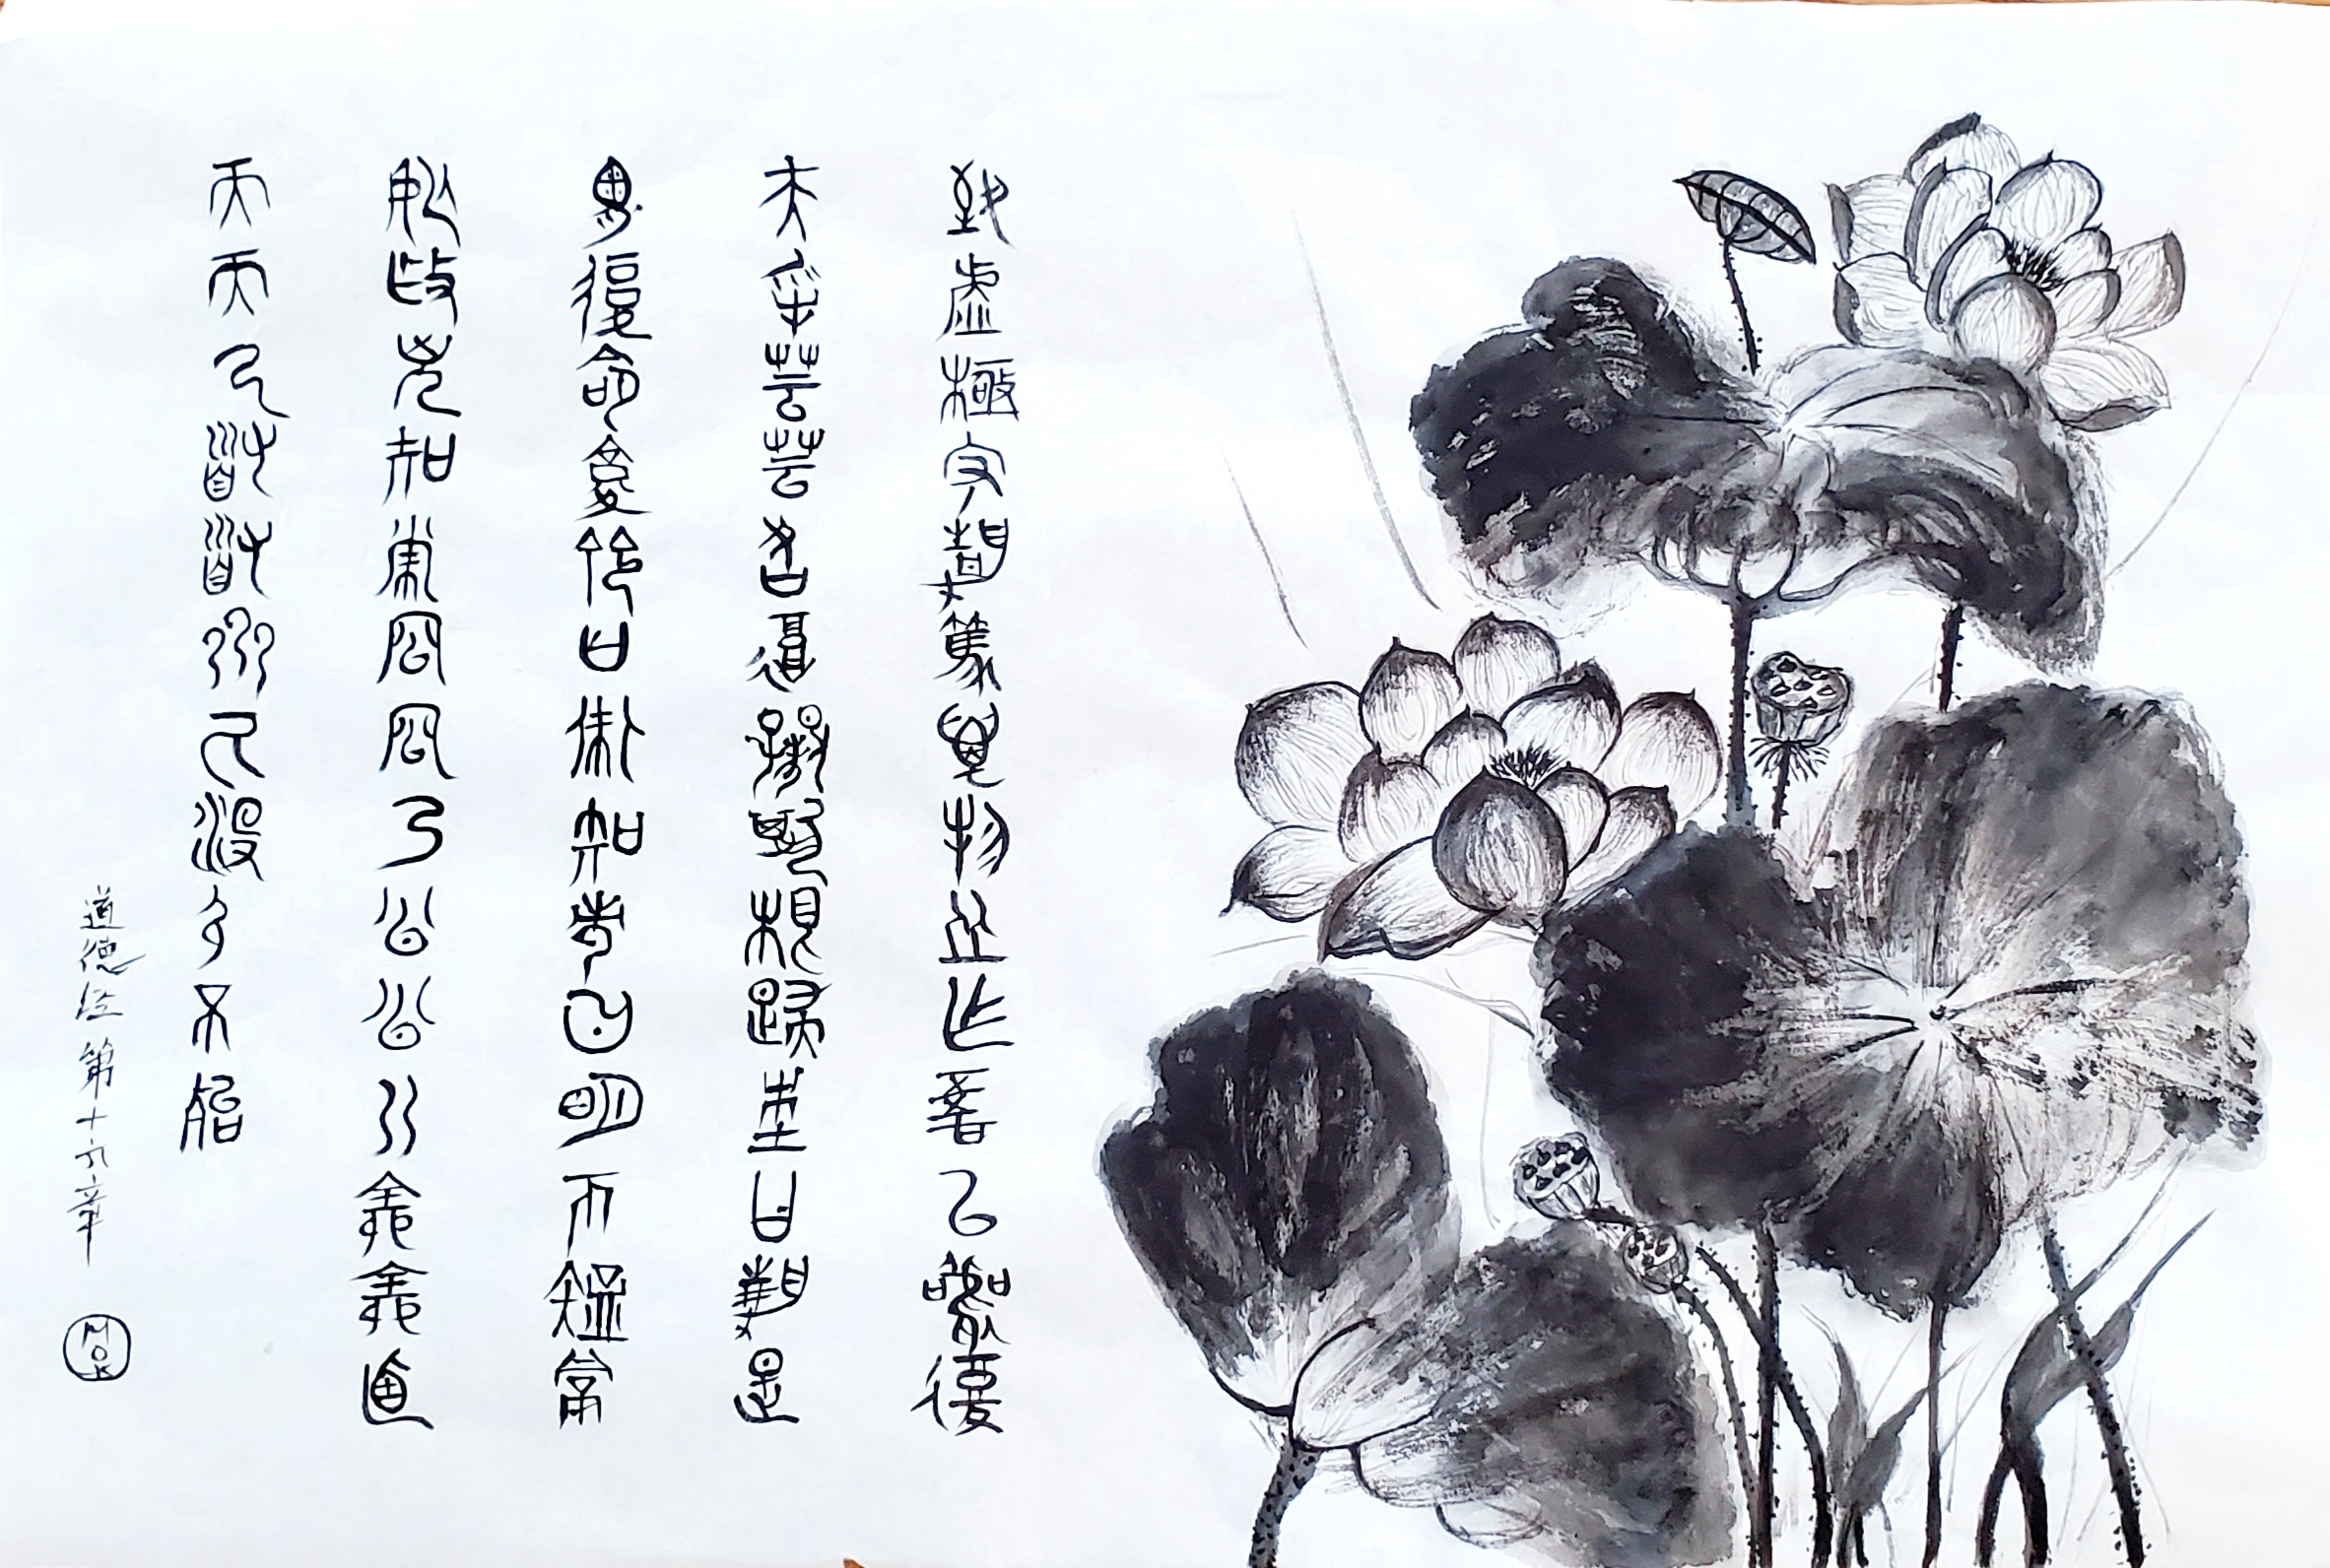 致虛極守靜篤萬物並作吾以觀復
夫物芸芸各復歸其根歸根曰靜是
謂復命復命曰常知常曰明不知常
妄作兇知常容容乃公公乃全全迺
天天乃道道乃久沒身不殆
道德经第十六章
MOK